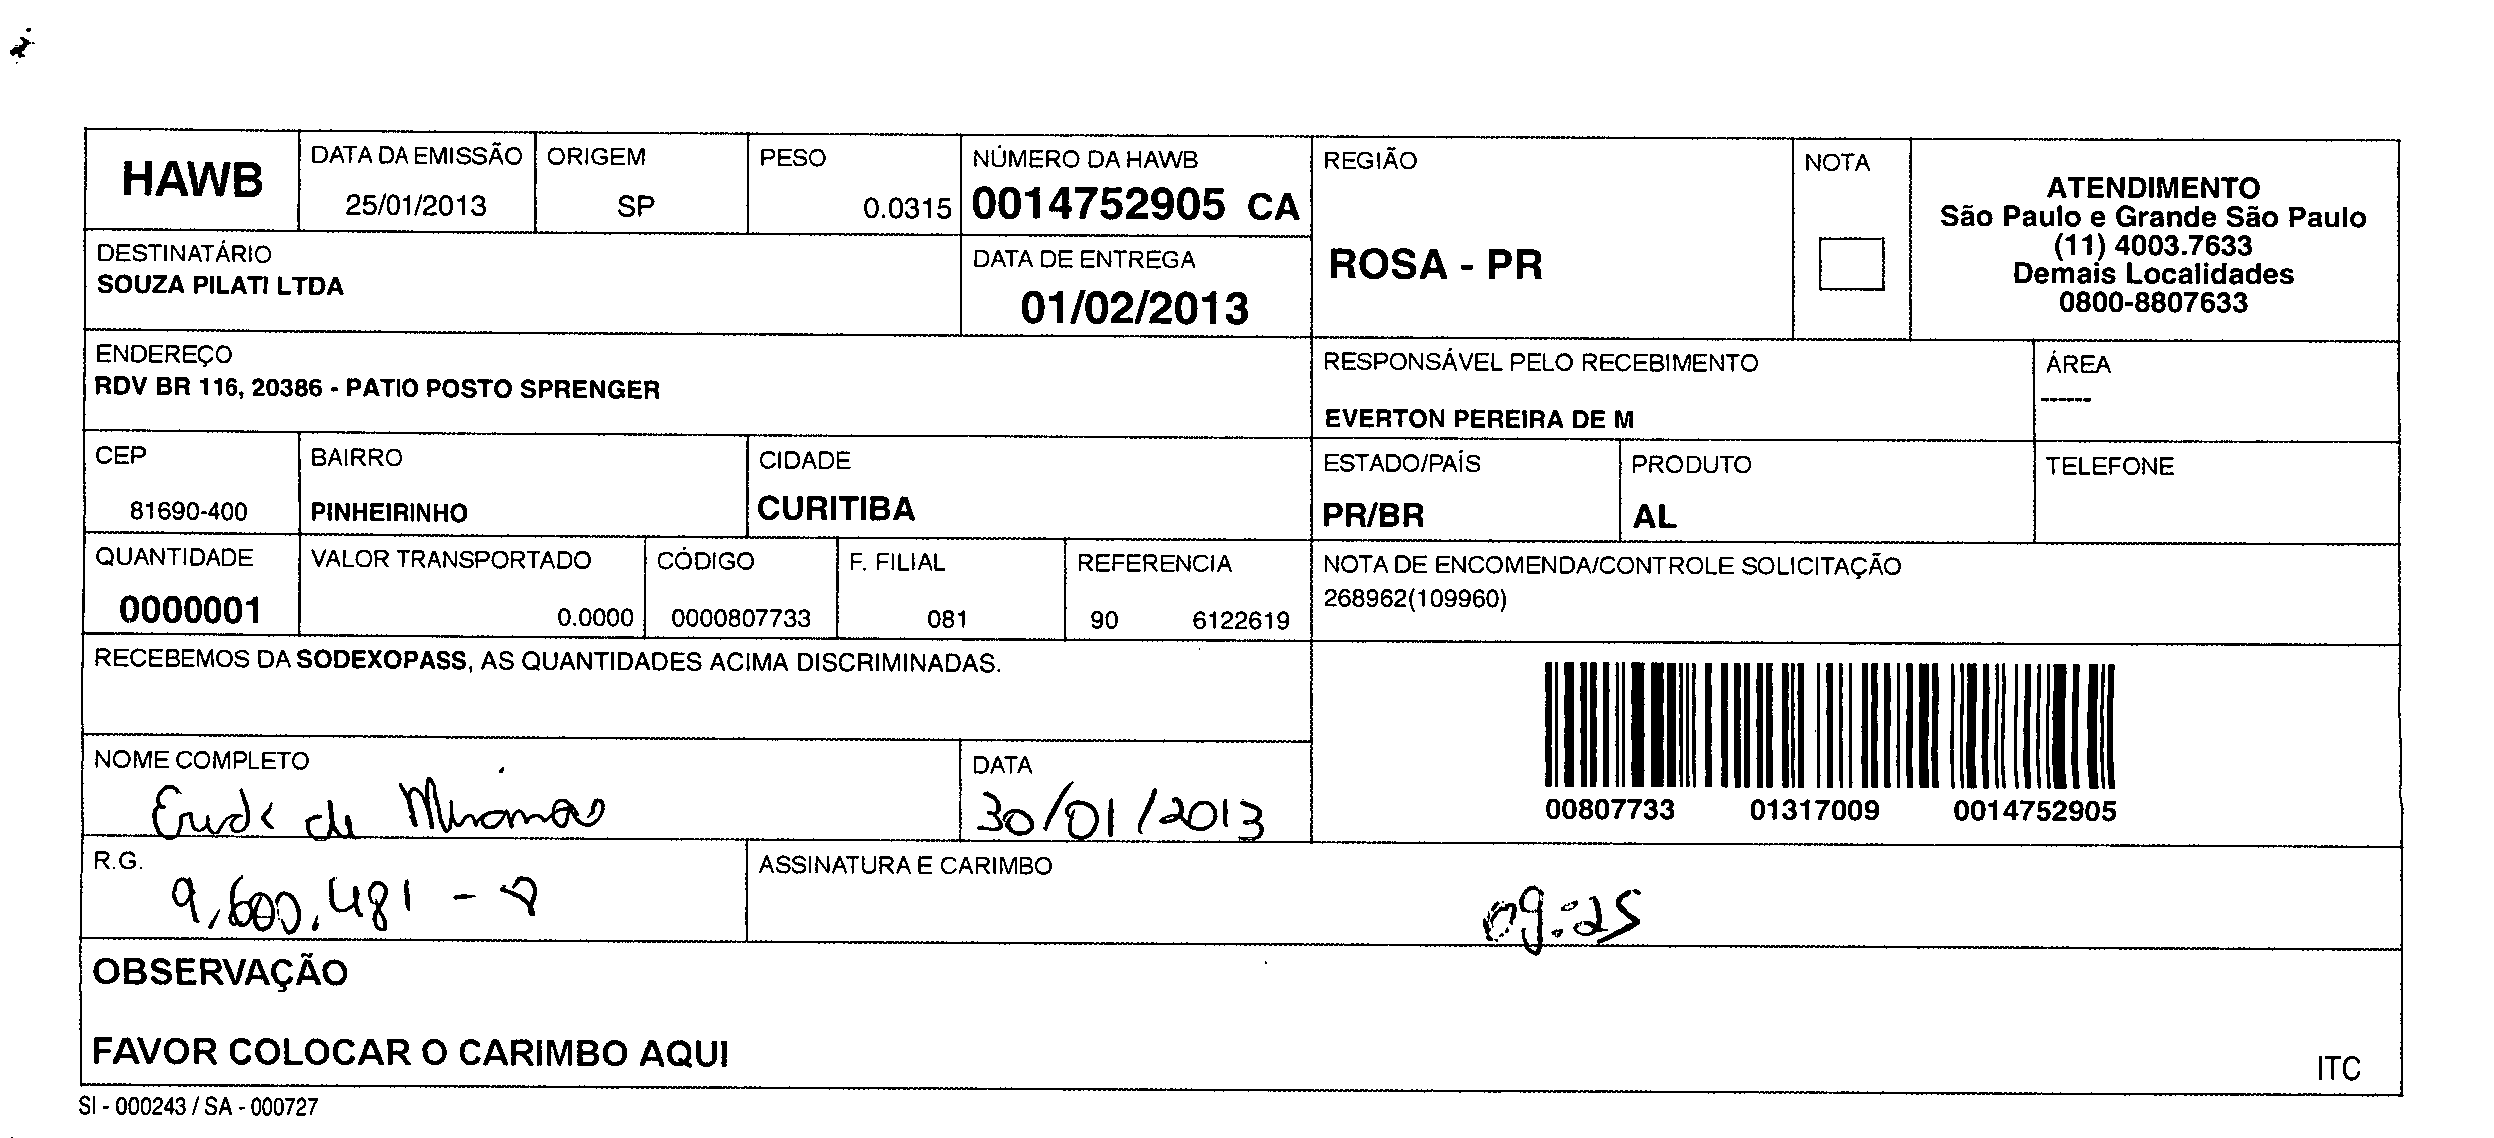 HAWB
DATA DA EMISSÃO
25/01/2013
ORIGEM
SP
PESO
0.0315
NÚMERO DA HAWB
0014752905 CA
REGIÃO
ROSA - PR
NOTA
ATENDIMENTO
São Paulo e Grande São Paulo
(11) 4003.7633
Demais Localidades
0800-8807633
DESTINATÁRIO
SOUZA PILATI LTDA
DATA DE ENTREGA
01/02/2013
ENDEREÇO
RDV BR 116, 20386 - PATIO POSTO SPRENGER
RESPONSÁVEL PELO RECEBIMENTO
EVERTON PEREIRA DE M
ÁREA
------
CEP
81690-400
BAIRRO
PINHEIRINHO
CIDADE
CURITIBA
ESTADO/PAÍS
PR/BR
PRODUTO
AL
TELEFONE
QUANTIDADE
0000001
VALOR TRANSPORTADO
0.0000
CÓDIGO
0000807733
F. FILIAL
081
REFERENCIA
90 6122619
NOTA DE ENCOMENDA/CONTROLE SOLICITAÇÃO
268962(109960)
RECEBEMOS DA SODEXOPASS, AS QUANTIDADES ACIMA DISCRIMINADAS.
00807733 01317009 0014752905
NOME COMPLETO
de
DATA
30/01/2013
R.G.
9.600.481 -
ASSINATURA E CARIMBO
09:25
OBSERVAÇÃO
FAVOR COLOCAR O CARIMBO AQUI
ITC
SI - 000243 / SA - 000727